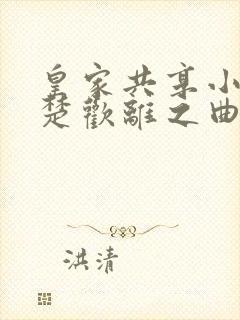 皇家共享小
楚歡離之曲
洪清